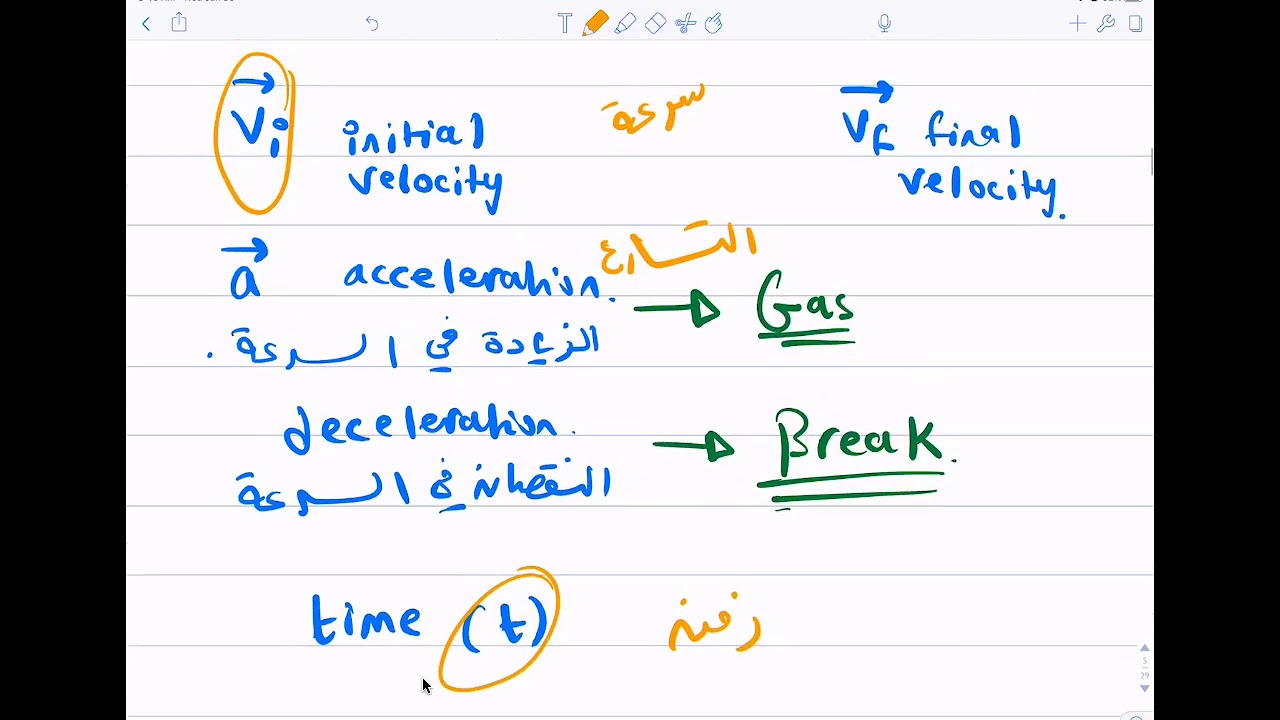 Vi initial velocity سرعة Vf final velocity.
a acceleration. التسارع → Gas
الزيادة في السرعة.
deceleration. → Break.
النقصان في السرعة
time (t)
5
29